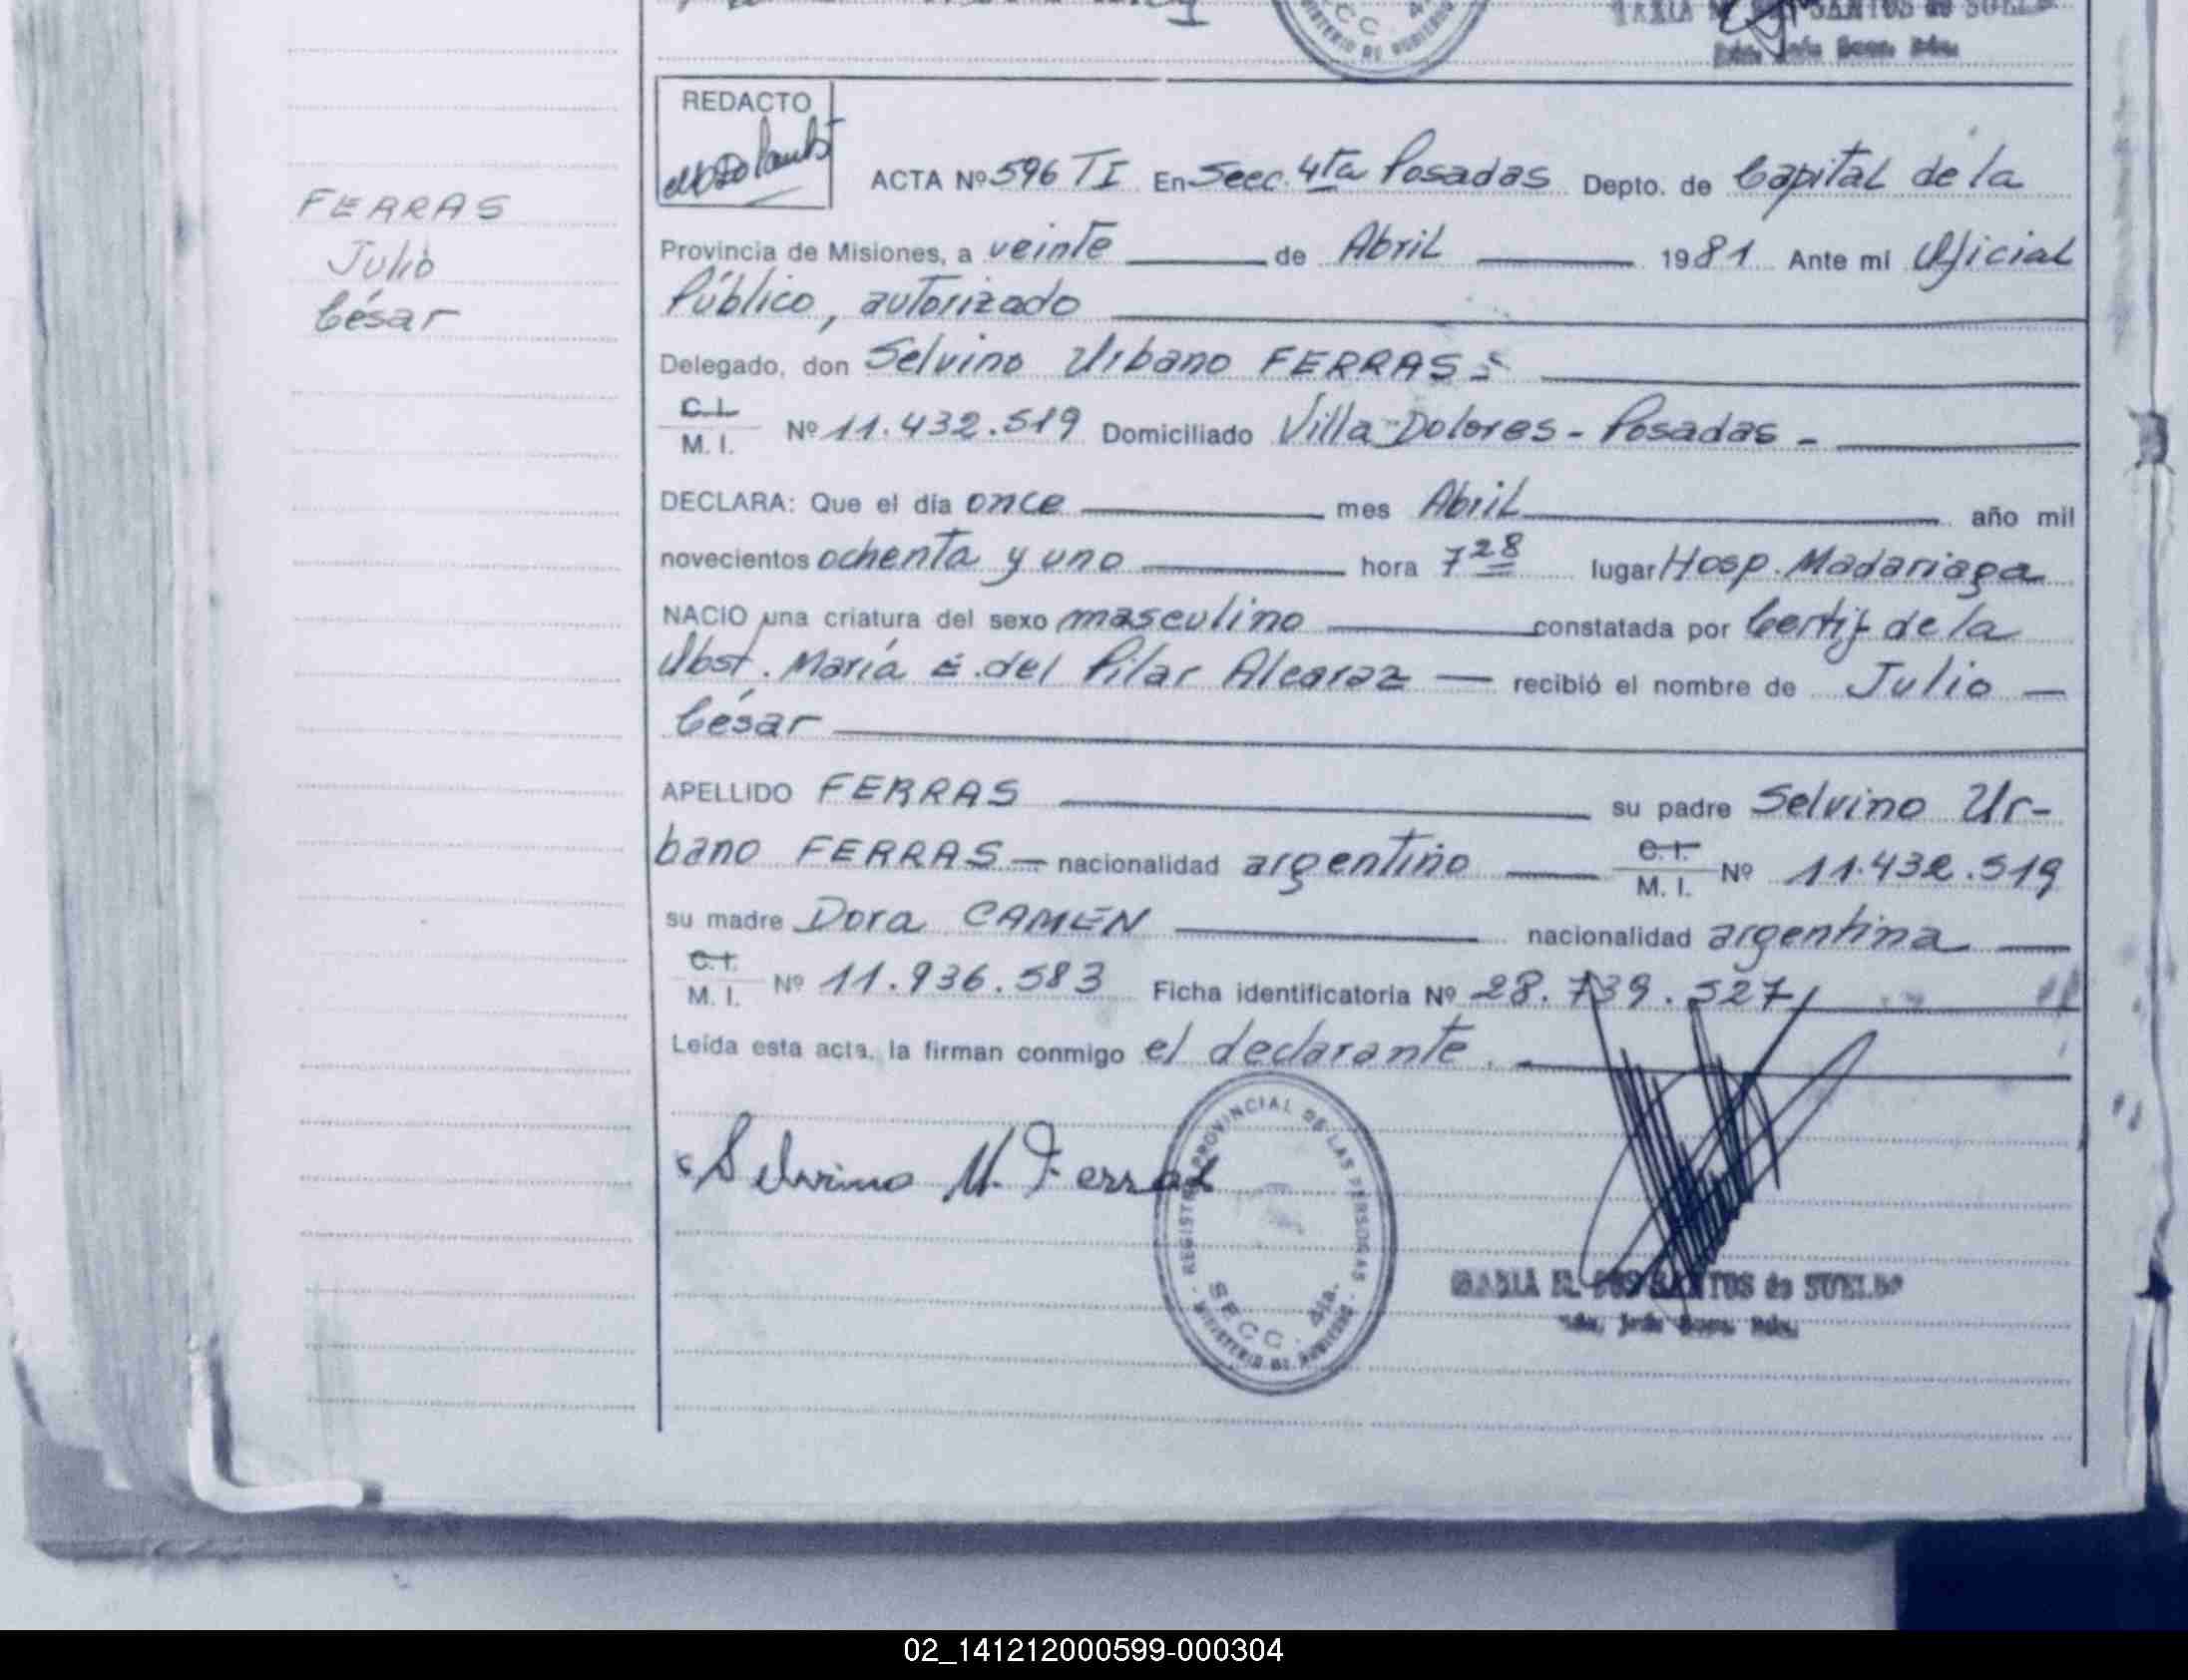 SANTOS de SUELDO
REDACTO
ACTA Nº 596 TI En Secc. 4ta Posadas Depto. de Capital de la
FERRAS
Julio
César
Provincia de Misiones, a veinte de Abril 1981 Ante mí Oficial
Público, autorizado
Delegado, don Selvino Urbano FERRAS:
C. I.
M. I. Nº 11.432.519 Domiciliado Villa Dolores - Posadas -
DECLARA: Que el día once mes Abril año mil
novecientos ochenta y uno hora 7 28 lugar Hosp. Madariaga
NACIO una criatura del sexo masculino constatada por Certif de la
Obst. María E. del Pilar Alcaraz — recibió el nombre de Julio —
César
APELLIDO FERRAS su padre Selvino Ur-
bano FERRAS — nacionalidad argentino C. I. M. I. Nº 11.432.519
su madre Dora CAMEN nacionalidad argentina
C. I.
M. I. Nº 11.936.583 Ficha identificatoria Nº 28.739.527
Leída esta acta, la firman conmigo el declarante.
Selvino U. Ferras
REGISTRO PROVINCIAL DE LAS PERSONAS
SECC. 4ta.
MINISTERIO DE GOBIERNO
MARIA DOS SANTOS de SUELDO
02_141212000599-000304